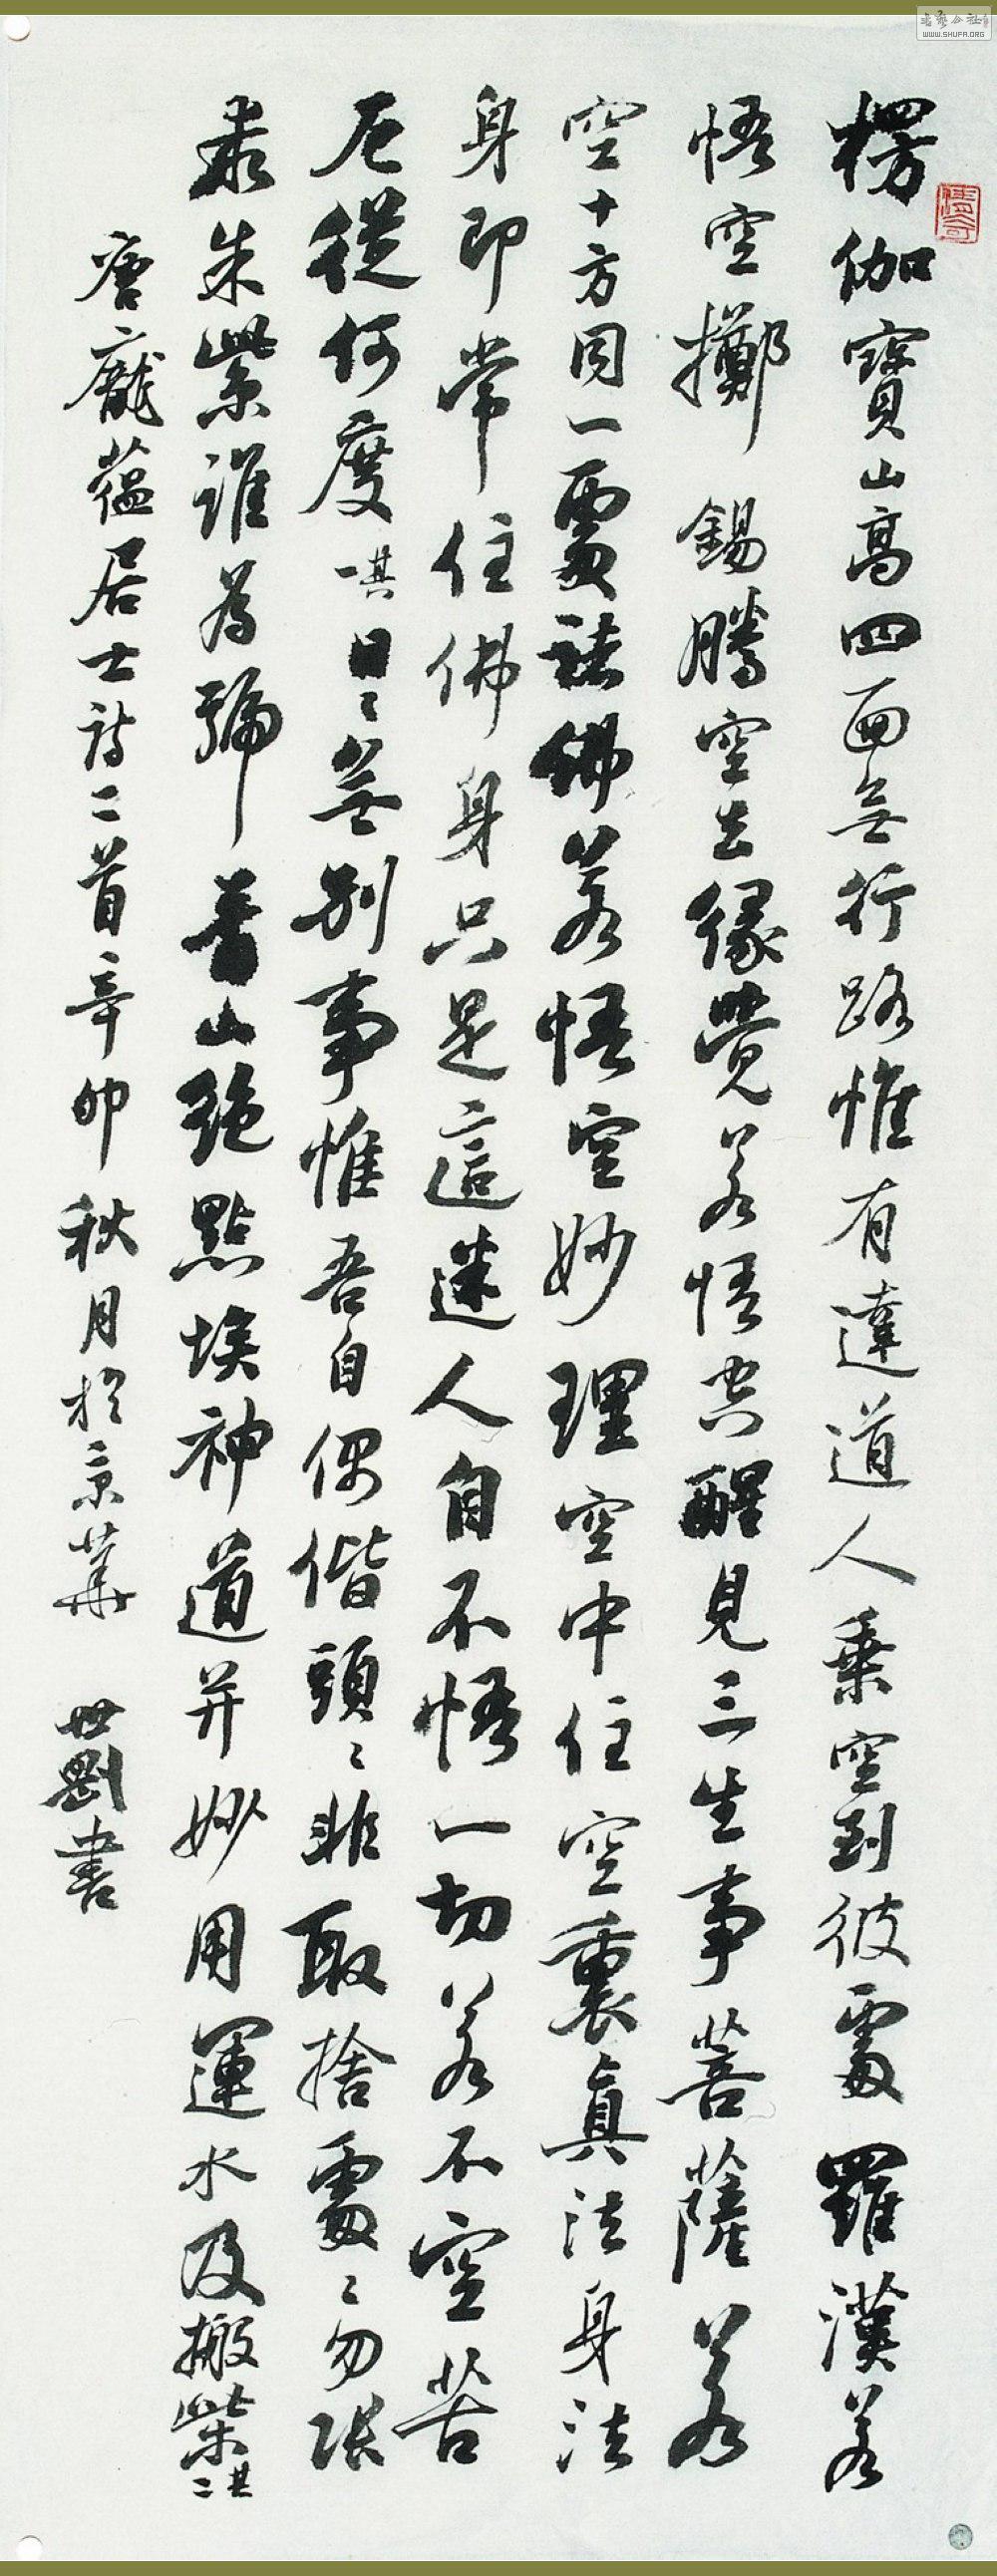 楞伽寶山高四面無行路惟有達道人乘空到彼處羅漢若
悟空擲錫騰空去緣覺若悟空醒見三生事菩薩若
空十方同一處諸佛若悟空妙理空中住空裏真法身法
身即常住佛身只是這迷人自不悟一切若不空苦
厄從何度其一日〻無別事惟吾自偶偕頭〻非取捨處〻勿張
乖朱紫誰為號青山絕點埃神道并妙用運水及搬柴其二
唐龐蘊居士詩二首辛卯秋月於京華世劉書
WWW.SHUFA.ORG